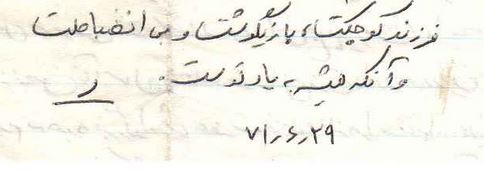 فرزند کوچکت، بازیگوشت و بی انضباطت
و آنکه همیشه به یاد توست.
۷۱٫۶٫۲۹